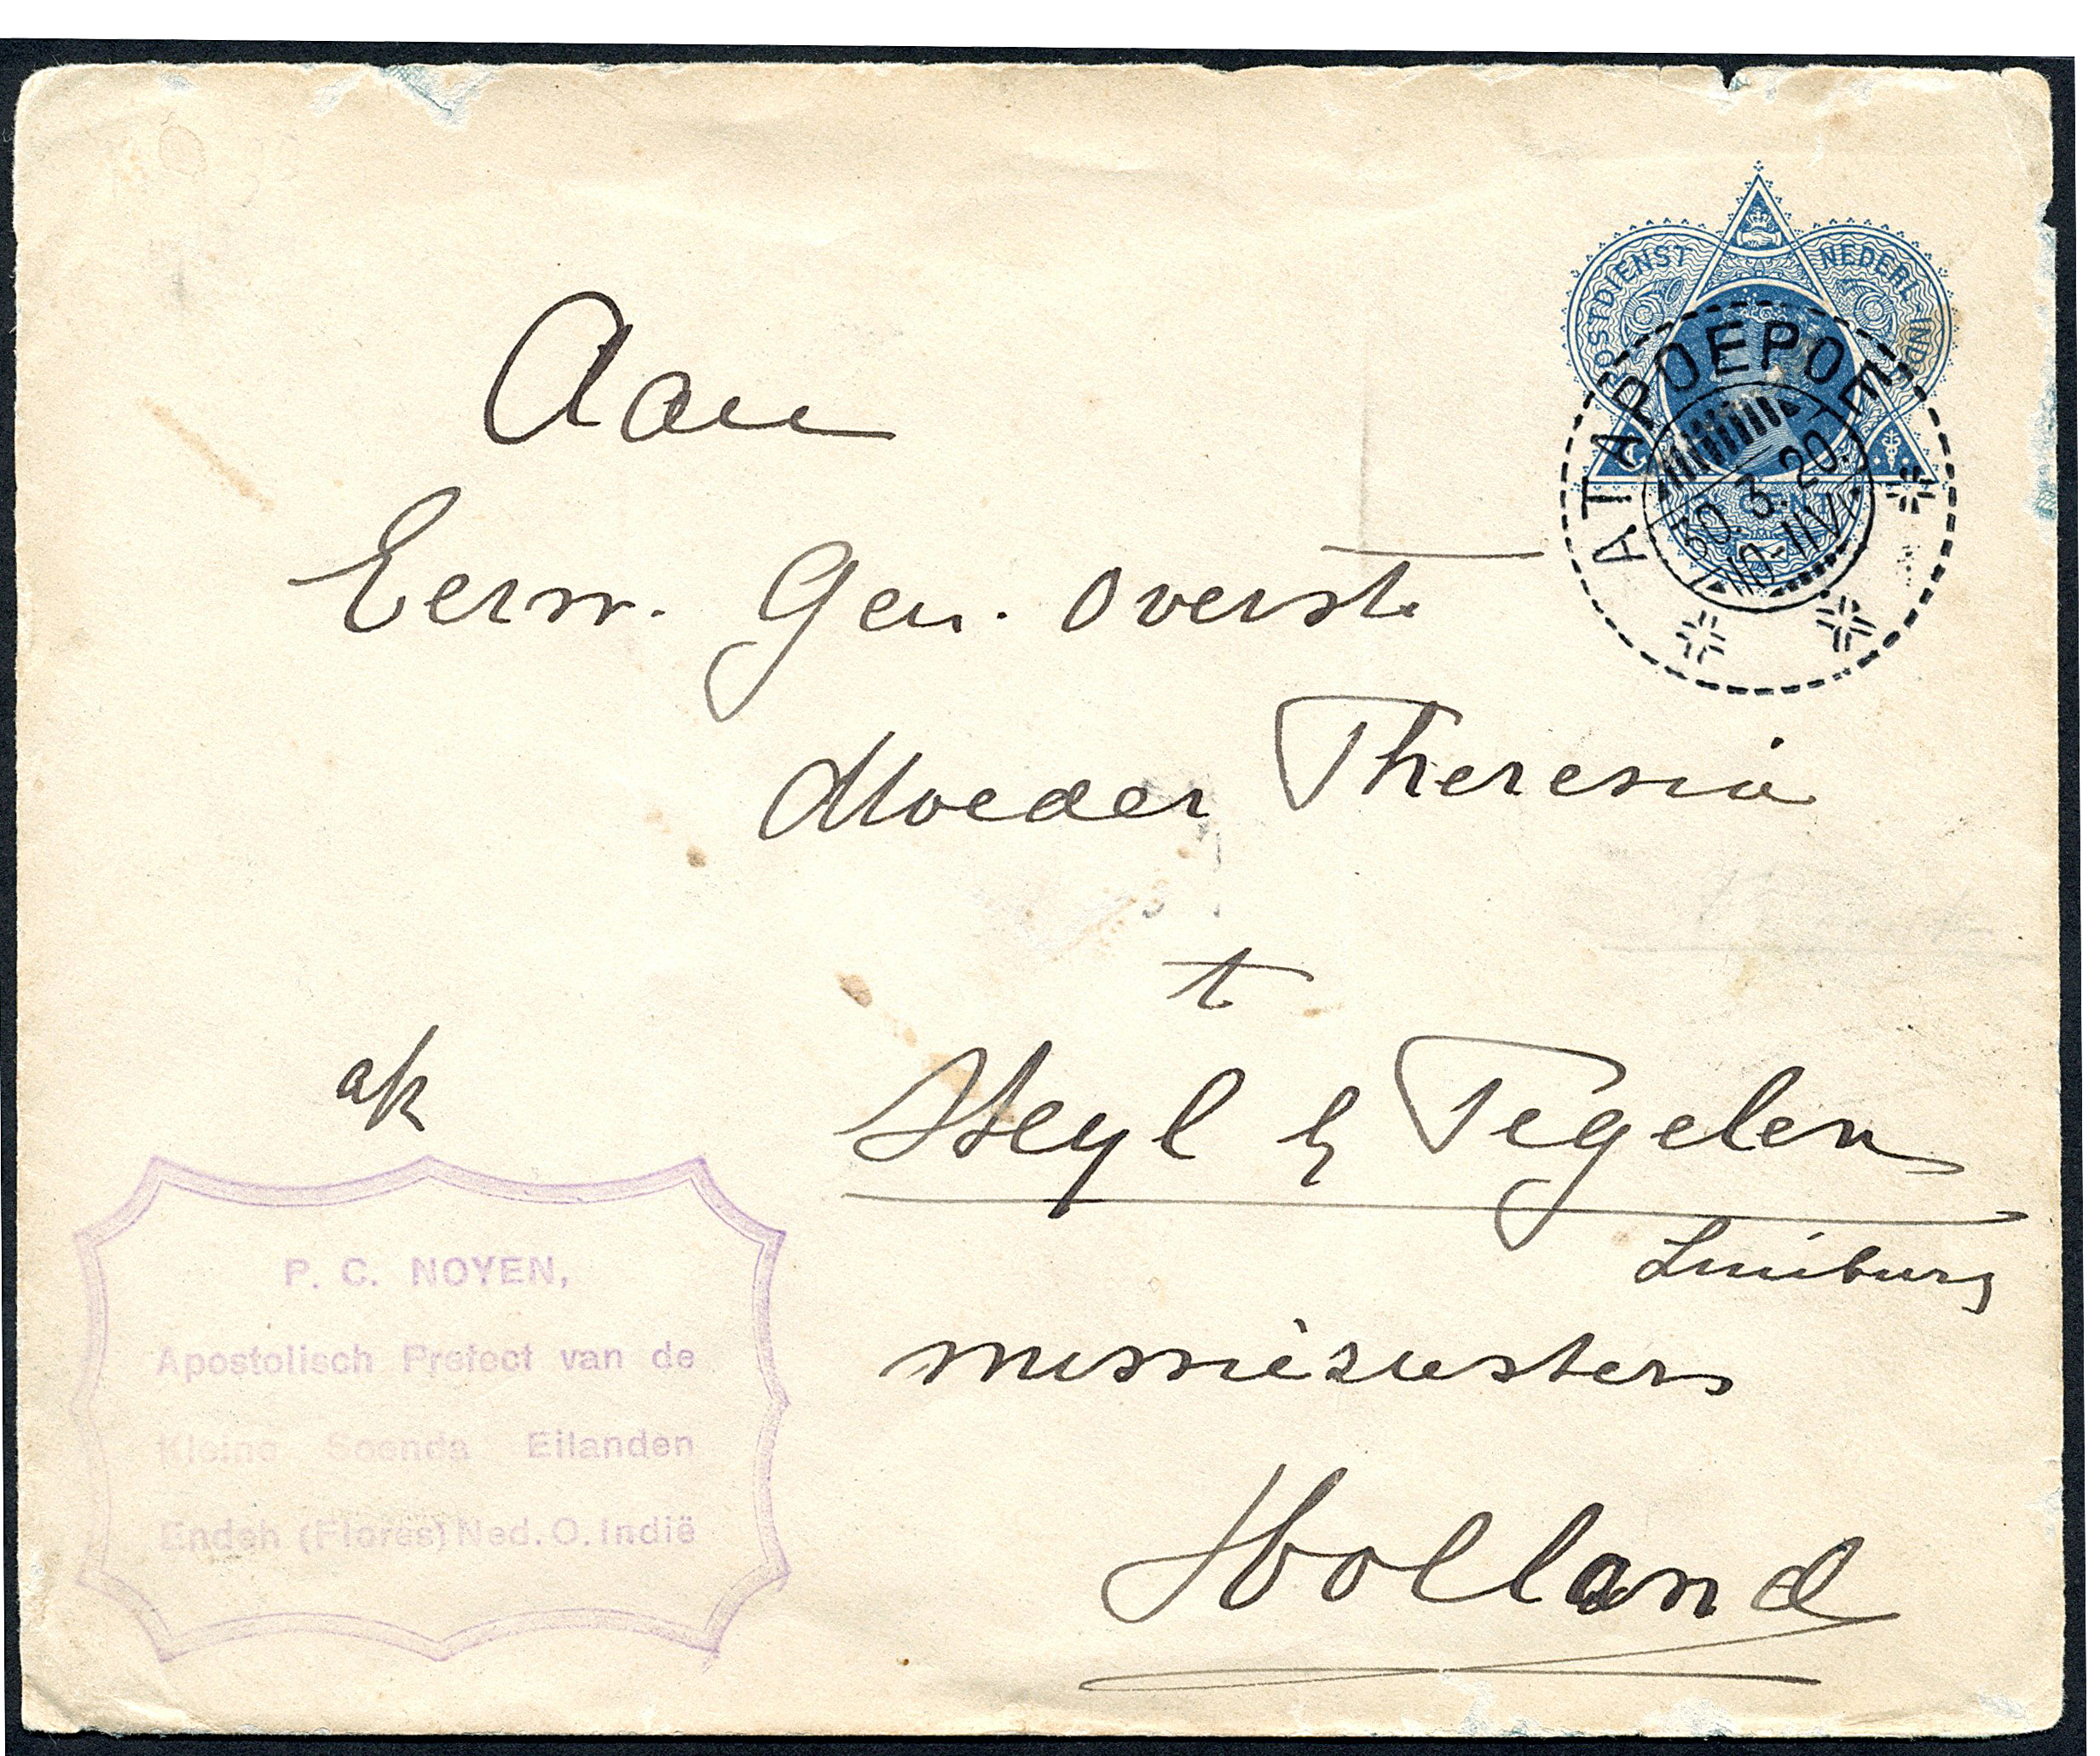 POSTDIENST NEDERL. INDIË
CENT
ATAPOEPOE
30.3.20.
10-11V
Aan
Eerw. Gen. Overste
Moeder Theresia
t
Steyl b/ Tegelen
Limburg
missiezusters
Holland
afz
P. C. NOYEN,
Apostolisch Prefect van de
Kleine Soenda Eilanden
Endeh (Flores) Ned. O. Indië